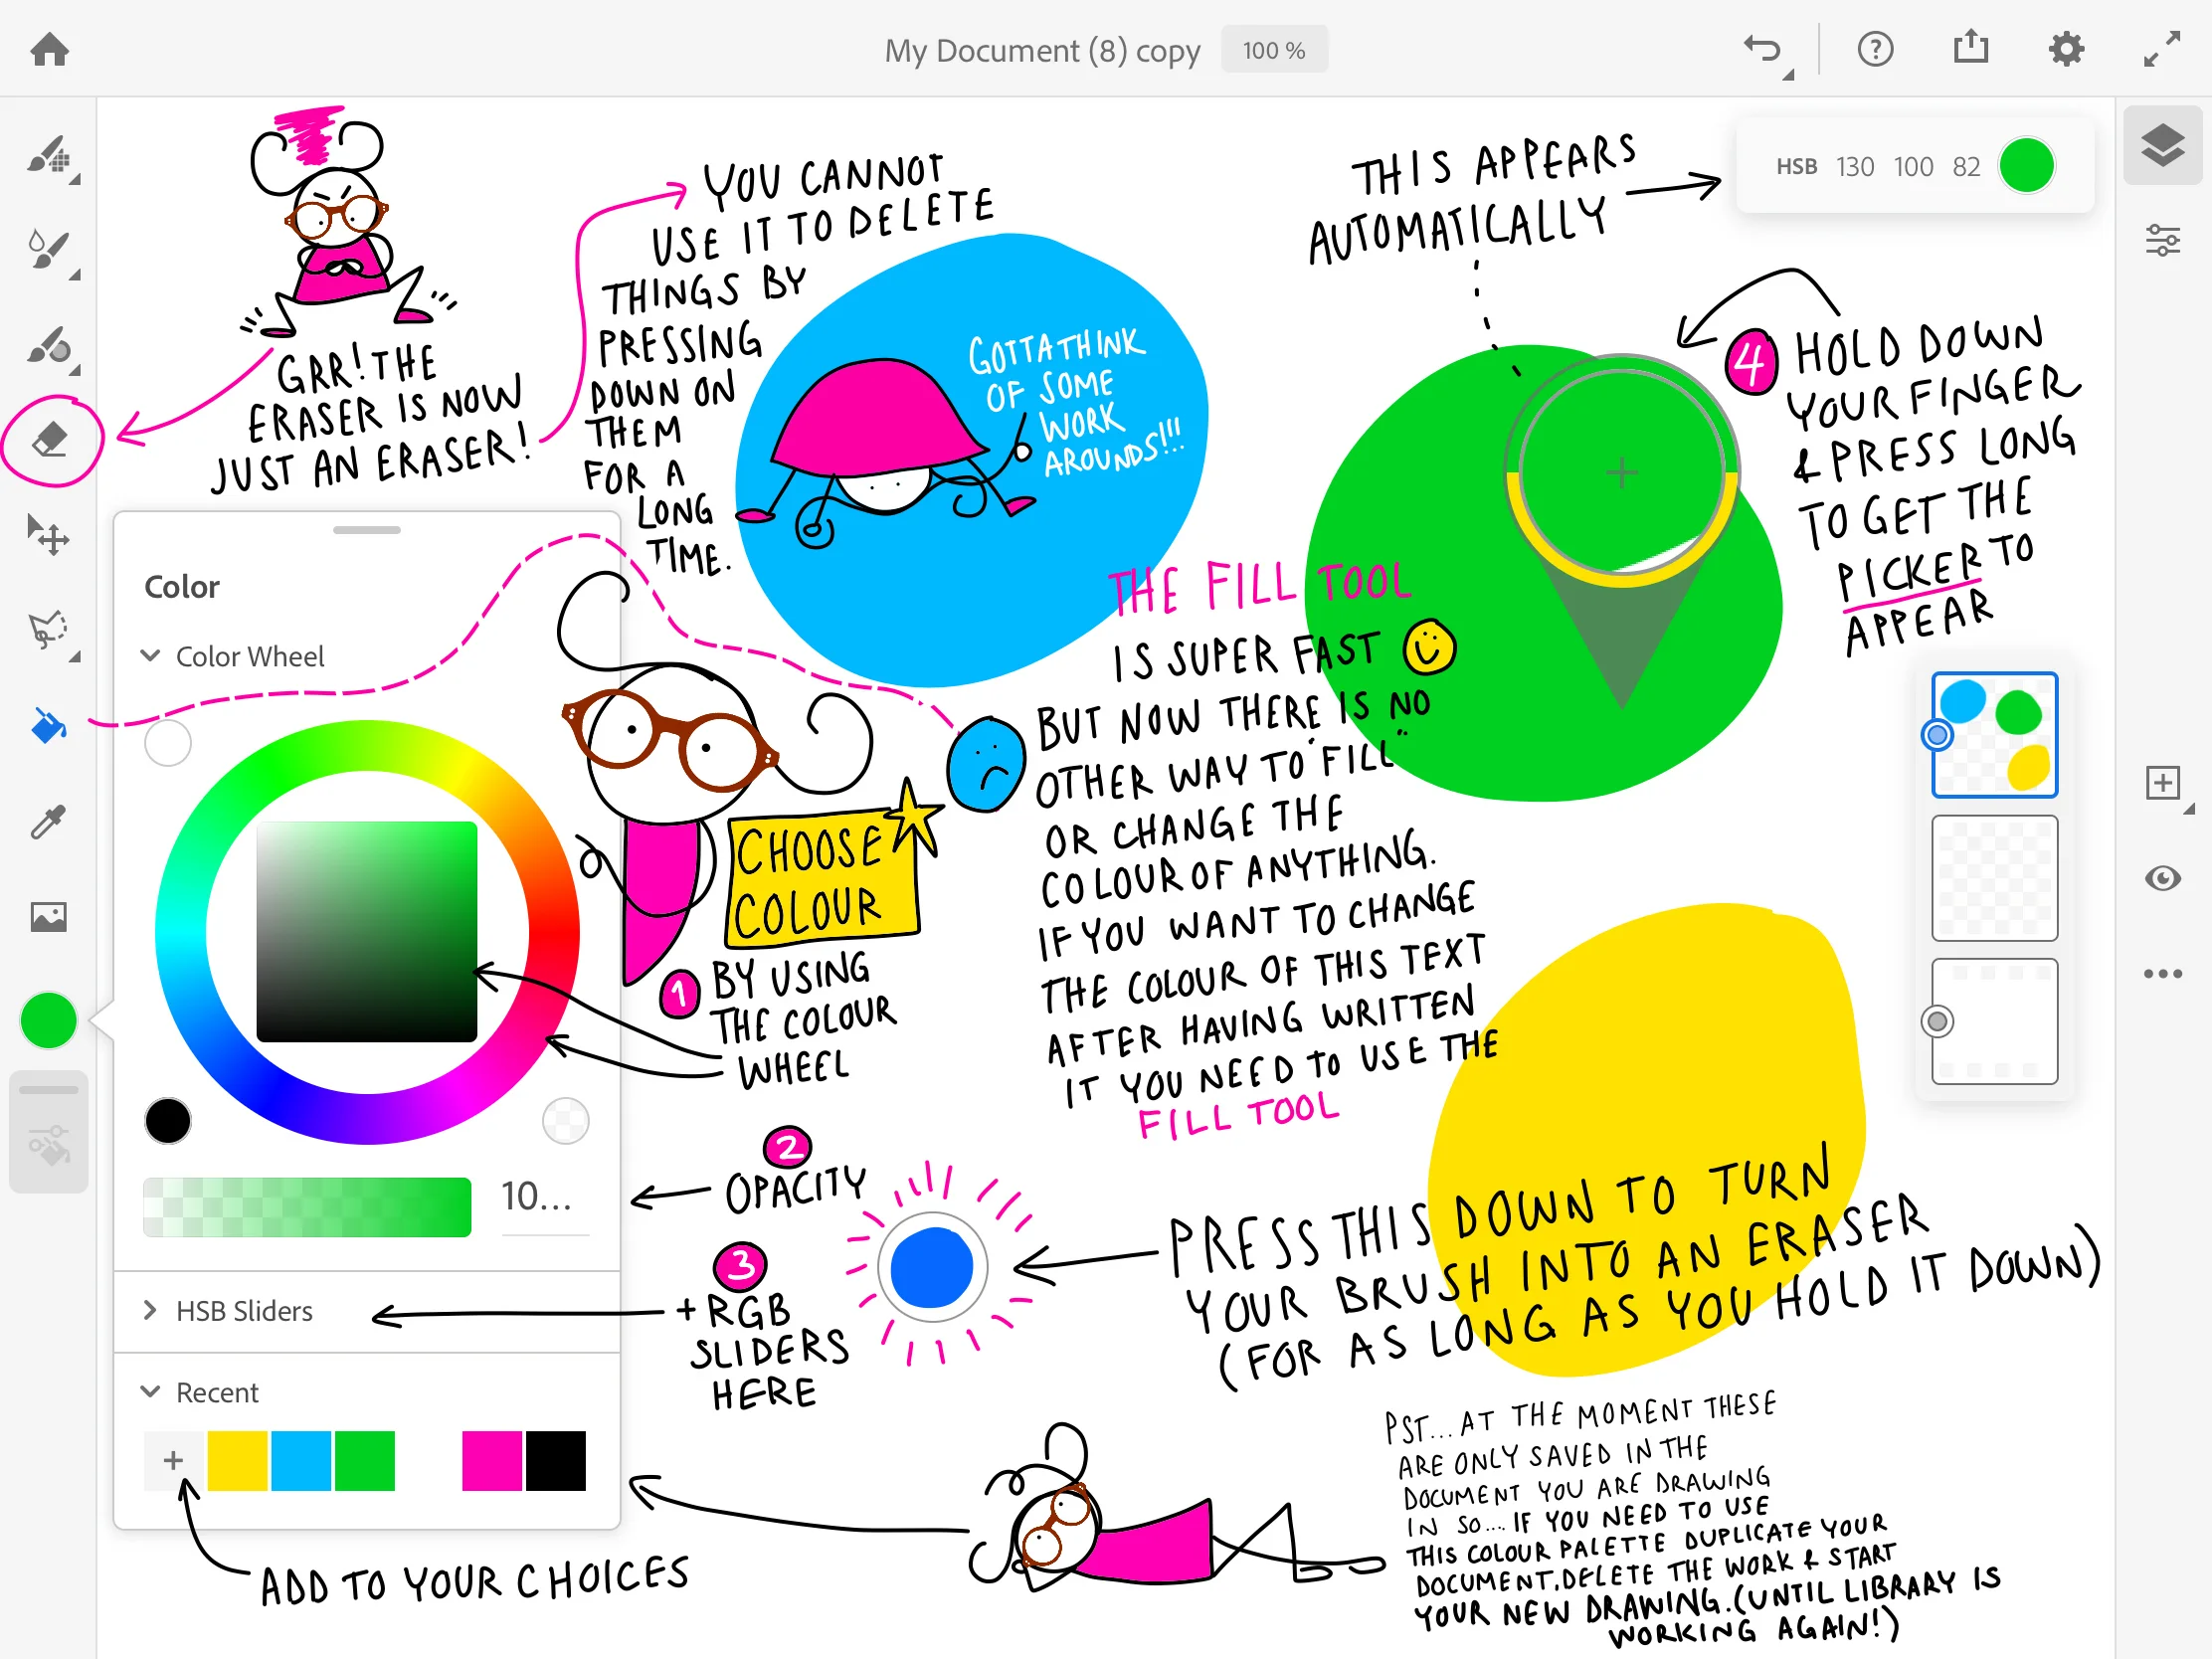 My Document (8) copy
100 %
HSB 130 100 82
GRR! THE
ERASER IS NOW
JUST AN ERASER!
YOU CANNOT
USE IT TO DELETE
THINGS BY
PRESSING
DOWN ON
THEM
FOR A
LONG
TIME.
GOTTA THINK
OF SOME
WORK
AROUNDS!!!
THIS APPEARS
AUTOMATICALLY
4
HOLD DOWN
YOUR FINGER
& PRESS LONG
TO GET THE
PICKER TO
APPEAR
Color
Color Wheel
10...
HSB Sliders
Recent
+
THE FILL TOOL
IS SUPER FAST
BUT NOW THERE IS NO
OTHER WAY TO "FILL"
OR CHANGE THE
COLOUR OF ANYTHING.
IF YOU WANT TO CHANGE
THE COLOUR OF THIS TEXT
AFTER HAVING WRITTEN
IT YOU NEED TO USE THE
FILL TOOL
CHOOSE
COLOUR
1
BY USING
THE COLOUR
WHEEL
2
OPACITY
3
+ RGB
SLIDERS
HERE
PRESS THIS DOWN TO TURN
YOUR BRUSH INTO AN ERASER
(FOR AS LONG AS YOU HOLD IT DOWN)
ADD TO YOUR CHOICES
PST... AT THE MOMENT THESE
ARE ONLY SAVED IN THE
DOCUMENT YOU ARE DRAWING
IN SO... IF YOU NEED TO USE
THIS COLOUR PALETTE DUPLICATE YOUR
DOCUMENT, DELETE THE WORK & START
YOUR NEW DRAWING. (UNTIL LIBRARY IS
WORKING AGAIN!)